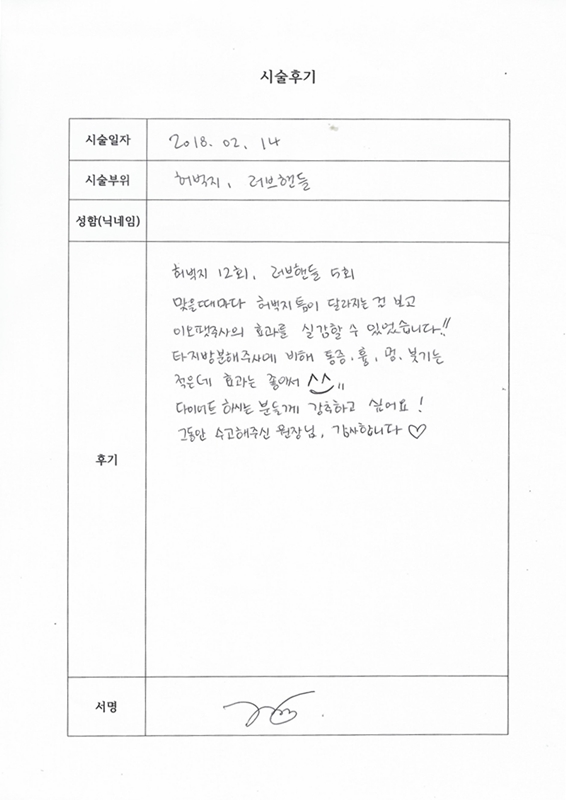 시술후기
시술일자 2018. 02. 14
시술부위 허벅지, 러브핸들
성함(닉네임)
후기
허벅지 12회, 러브핸들 5회
맞을때마다 허벅지 틈이 달라지는 걸 보고
이오팻주사의 효과를 실감할 수 있었습니다!!
타지방분해주사에 비해 통증, 흉, 멍, 붓기는
적은데 효과는 좋아서 ^^
다이어트 하시는 분들께 강추하고 싶어요!
그동안 수고해주신 원장님, 감사합니다 ♡
서명